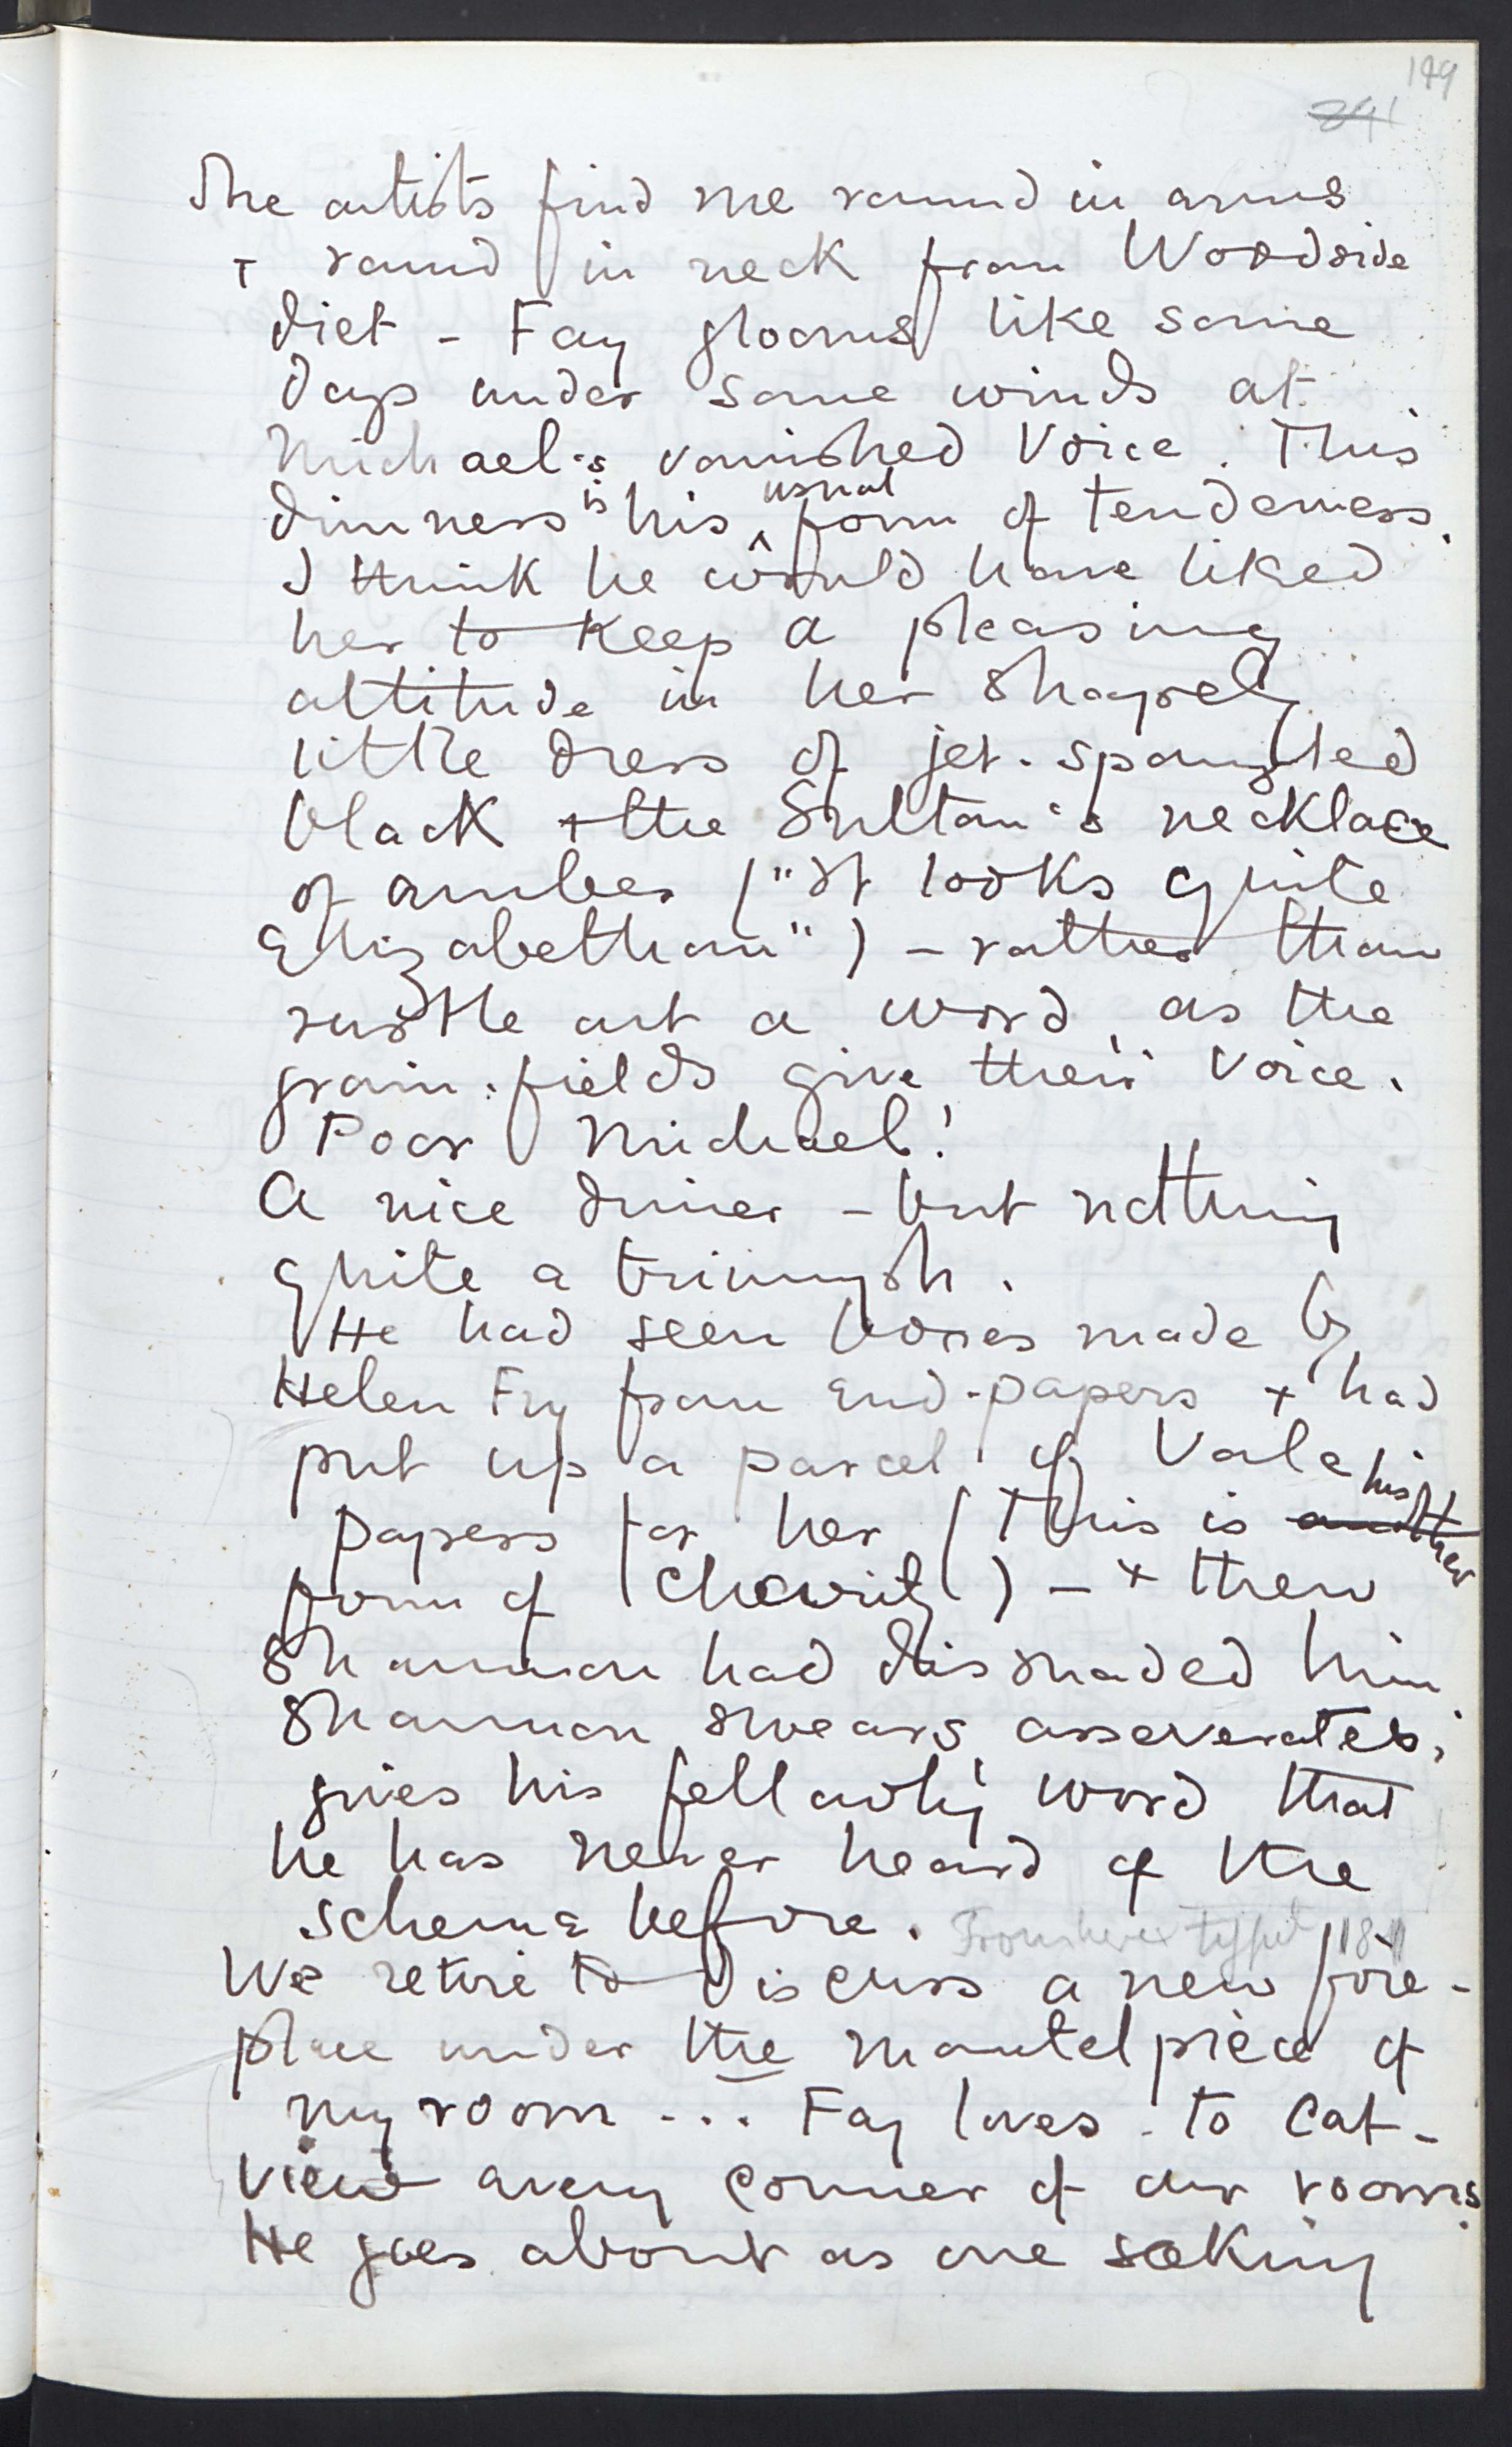 149
241
The artists find me round in arms
+ round in neck from Woodside
diet - Fay glooms like some
days under some winds at
Michael's vanished voice. This
dimness is his ^usual form of tenderness.
I think he would have liked
her to keep a pleasing
attitude in her shapely
little dress of jet-spangled
black + the Sultan's necklace
of amber ("It looks quite
Elizabethan") - rather than
rustle out a word, as the
grain-fields give their voice.
Poor Michael!
A nice dinner - but nothing
quite a triumph.
He had seen boxes made by
Helen Fry from end-papers + had
put up a parcel of Vale
papers for her (This is another his
form of charity) - + then
Shannon had dissuaded him
Shannon swears, asseverates,
gives his fellowly word that
he has never heard of the
scheme before. From here typed
We retire to discuss a new fire-
place under the mantelpiece of
my room ... Fay loves to cat-
view every corner of our rooms.
He goes about as one seeking